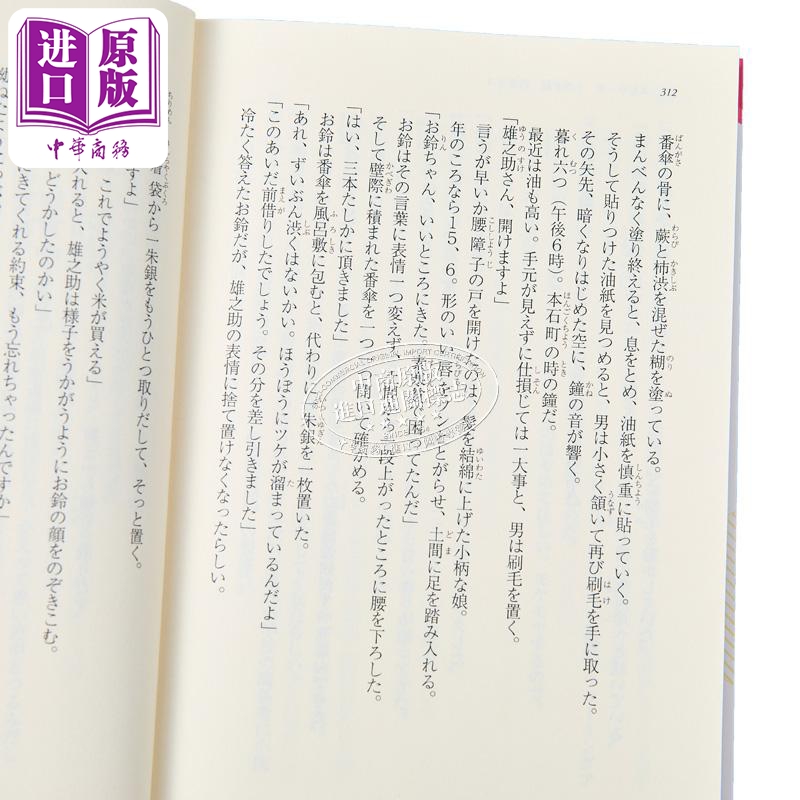 进口
原版
中華商務
312
番傘の骨に、蕨と柿渋を混ぜた糊を塗っている。
まんべんなく塗り終えると、息をとめ、油紙を慎重に貼っていく。
そうして貼りつけた油紙を見つめると、男は小さく頷いて再び刷毛を手に取った。
その矢先、暗くなりはじめた空に、鐘の音が響く。
暮れ六つ（午後6時）。本石町の時の鐘だ。
最近は油も高い。手元が見えずに仕損じては一大事と、男は刷毛を置く。
「雄之助さん、開けますよ」
言うが早いか腰障子の戸を開けたのは、髪を結綿に上げた小柄な娘。
年のころなら15、6。形のいい唇をツンととがらせ、土間に足を踏み入れる。
「お鈴ちゃん、いいところにきた。素寒貧で困ってたんだ」
お鈴はその言葉に表情一つ変えず、土間から一段上がったところに腰を下ろした。
そして壁際に積まれた番傘を一つ一つ開いて確かめる。
「はい、三本たしかに頂きました」
お鈴は番傘を風呂敷に包むと、代わりに一朱銀を一枚置いた。
「あれ、ずいぶん渋くはないかい。ほうぼうにツケが溜まっているんだよ」
「このあいだ前借りしたでしょう。その分を差し引きました」
冷たく答えたお鈴だが、雄之助の表情に捨て置けなくなったらしい。
袋から一朱銀をもうひとつ取りだして、そっと置く。
ですよ」
これでようやく米が買える」
入れると、雄之助は様子をうかがうようにお鈴の顔をのぞきこむ。
どうかしたのかい」
にきてくれる約束、もう忘れちゃったんですか」